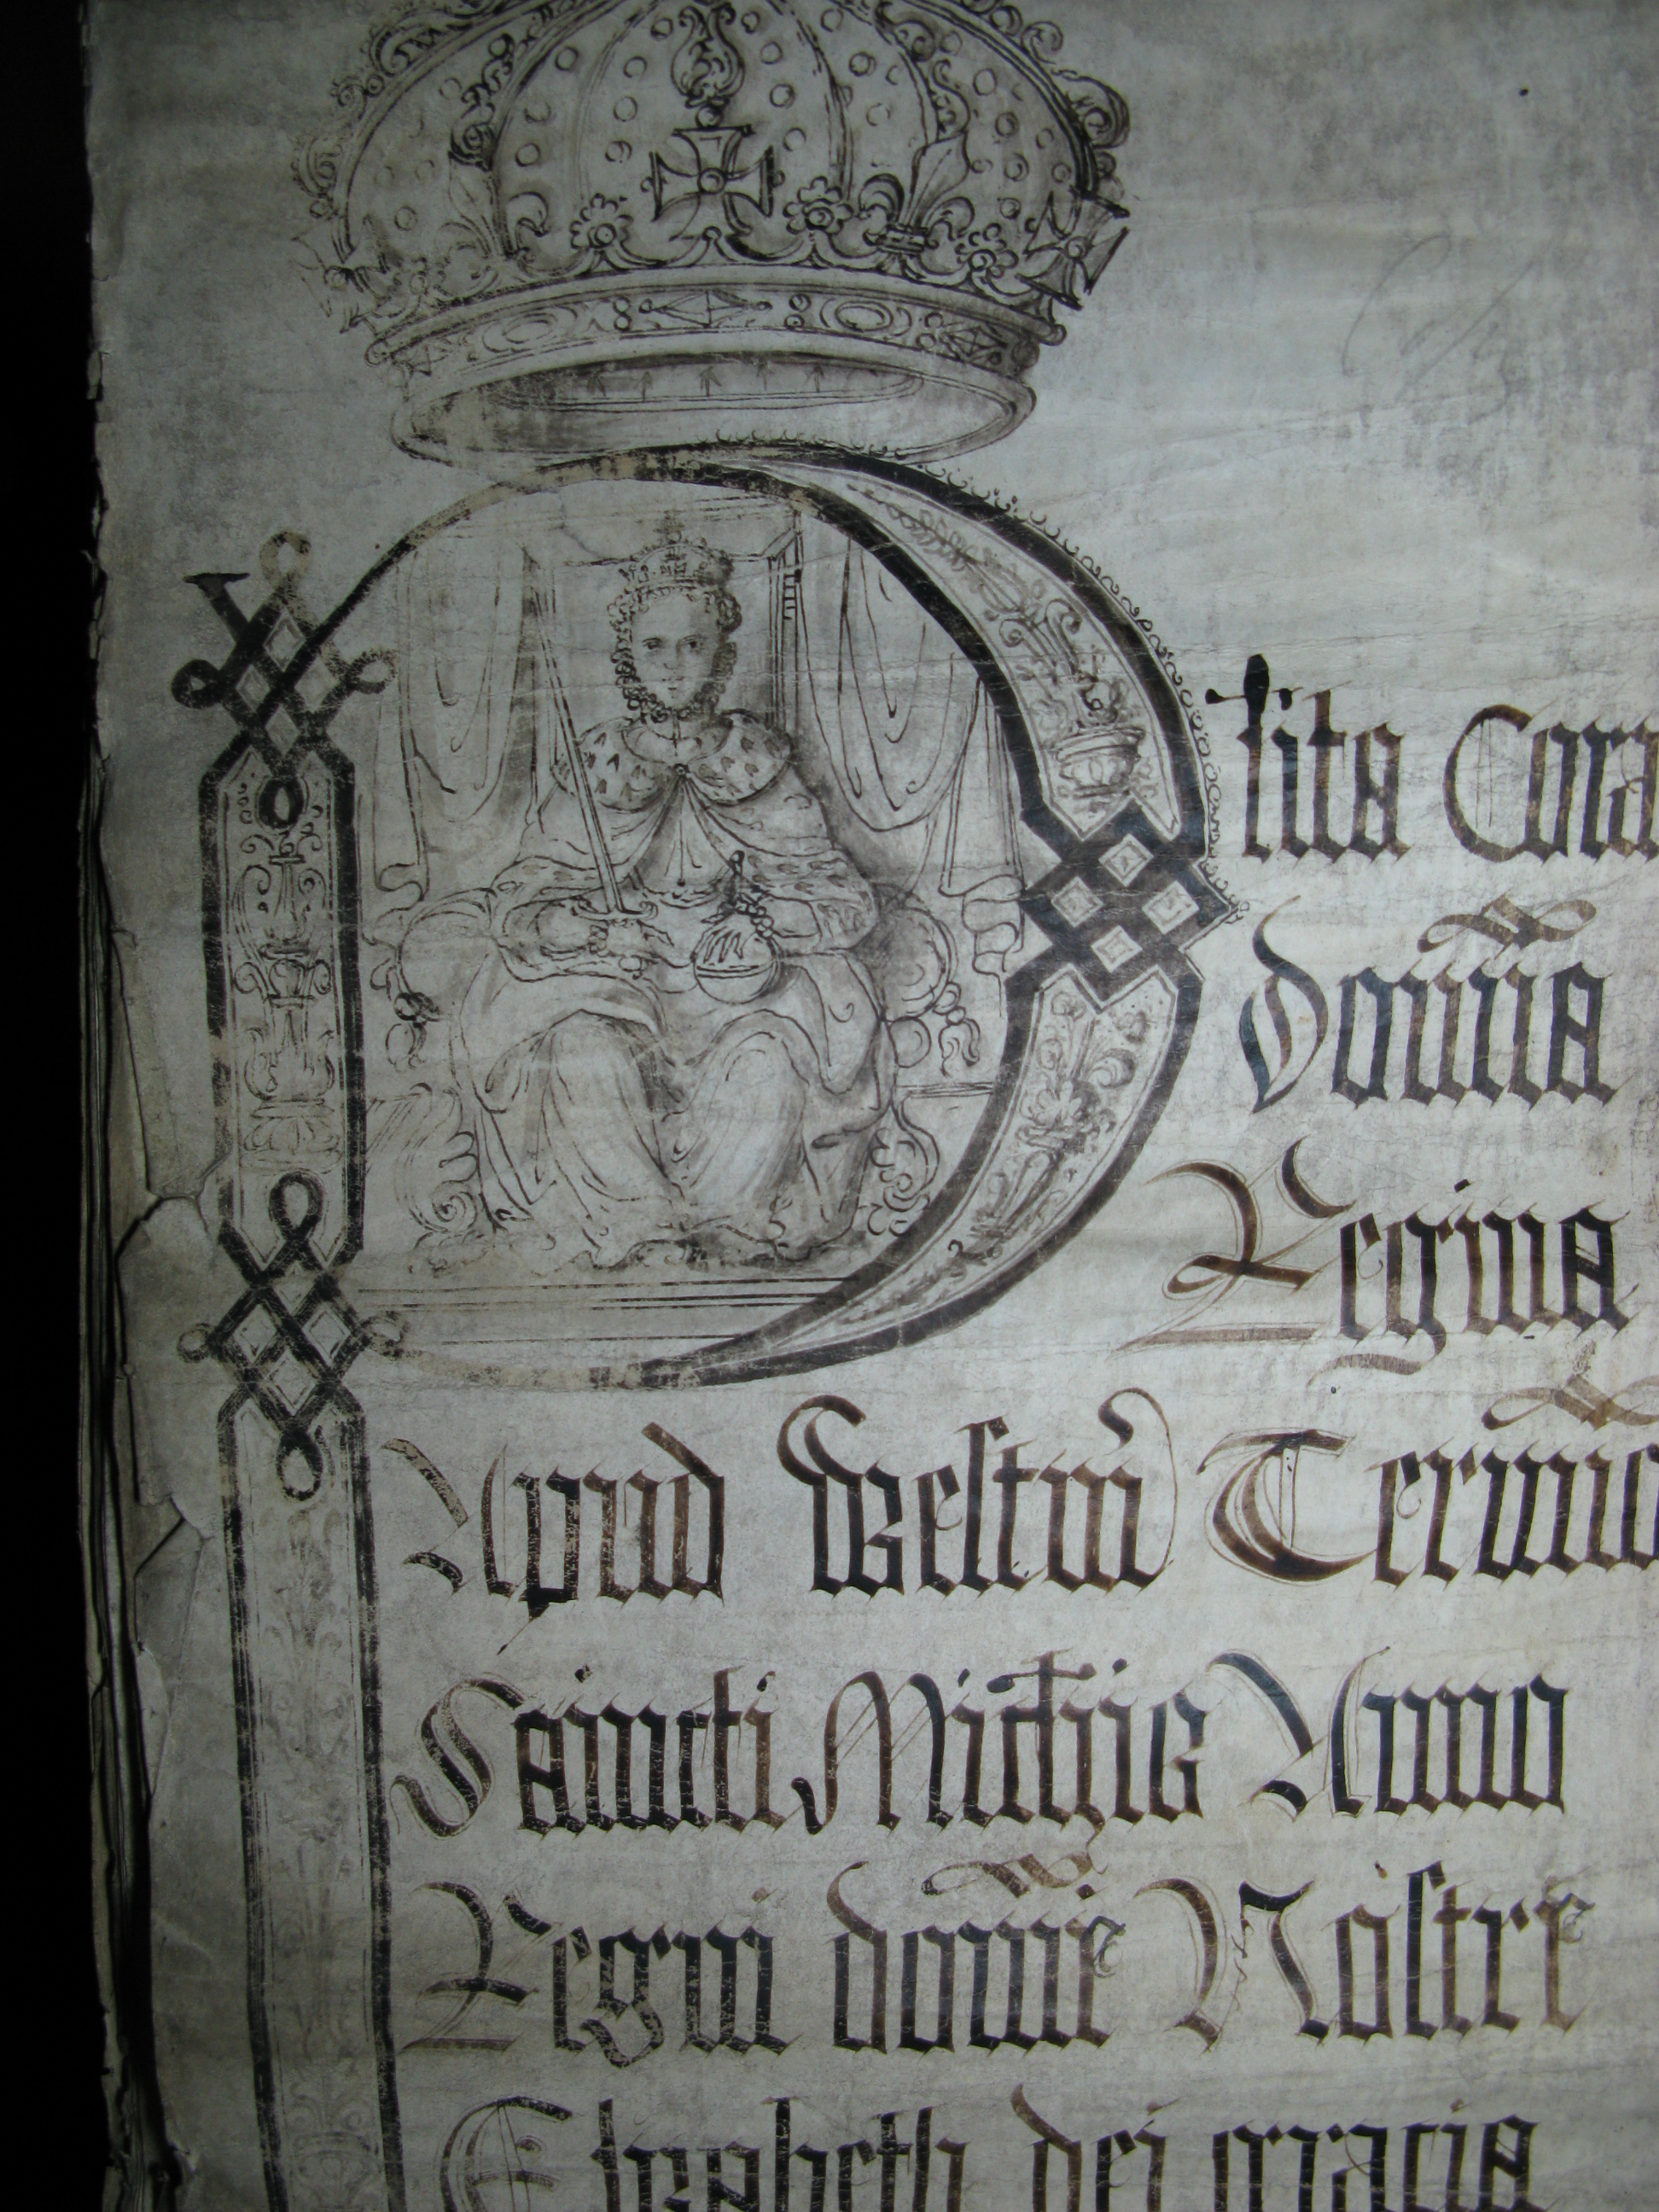 Plita Cora
domina
Regina
Apud Westm̃ Termino
Sancti Mich̃is Anno
Regni dom̃e Nostre
Elizabeth dei gracia